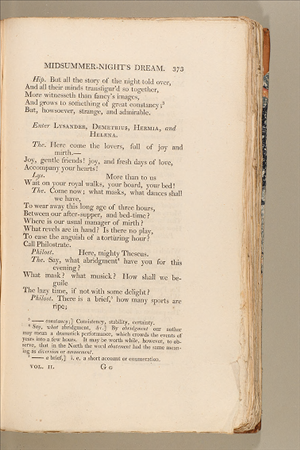 MIDSUMMER-NIGHT'S DREAM. 373
Hip. But all the story of the night told over,
And all their minds transfigur'd so together,
More witnesseth than fancy's images,
And grows to something of great constancy;³
But, howsoever, strange, and admirable.
Enter LYSANDER, DEMETRIUS, HERMIA, and
HELENA.
The. Here come the lovers, full of joy and
mirth.—
Joy, gentle friends! joy, and fresh days of love,
Accompany your hearts!
Lys. More than to us
Wait on your royal walks, your board, your bed!
The. Come now; what masks, what dances shall
we have,
To wear away this long age of three hours,
Between our after-supper, and bed-time?
Where is our usual manager of mirth?
What revels are in hand? Is there no play,
To ease the anguish of a torturing hour?
Call Philostrate.
Philost. Here, mighty Theseus.
The. Say, what abridgment⁴ have you for this
evening?
What mask? what musick? How shall we be-
guile
The lazy time, if not with some delight?
Philost. There is a brief,⁵ how many sports are
ripe;
³ —— constancy;] Consistency, stability, certainty.
⁴ Say, what abridgment, &c.] By abridgment our author
may mean a dramatick performance, which crowds the events of
years into a few hours. It may be worth while, however, to ob-
serve, that in the North the word abatement had the same mean-
ing as diversion or amusement.
⁵ —— a brief,] i. e. a short account or enumeration.
VOL. II. G g